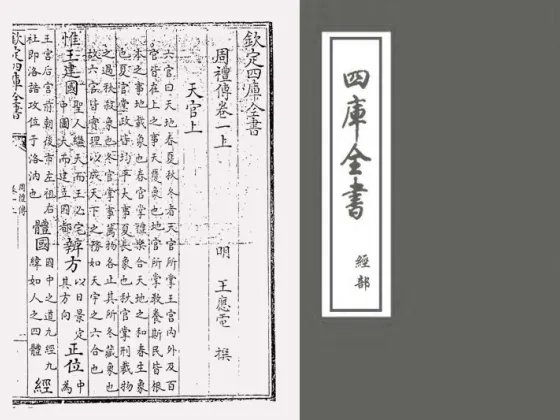 欽定四庫全書
周禮傳卷一上
明 王應電 撰
天官上
六官曰天地春夏秋冬者天官所掌王宮内外及百
官皆在上之事天覆象也地官所掌教養斯民皆根
本之事地載象也春官掌禮樂合天地之和春生象
也夏官掌政皆均平大事夏長象也秋官掌刑物
之過秋殺象也冬官掌事萬物各正其所冬藏象也
故六官皆實理以成天下之務如天宇之六合也
惟王建國聖人繼天而王必定中圖大而建立國都辨方以日景定其方向正位中為
王宮后宮前朝後市左祖右社即洛誥攻位于洛汭也體國國中之道九經九緯如人之四體經
欽定四庫全書
周禮傳
四庫全書
經部